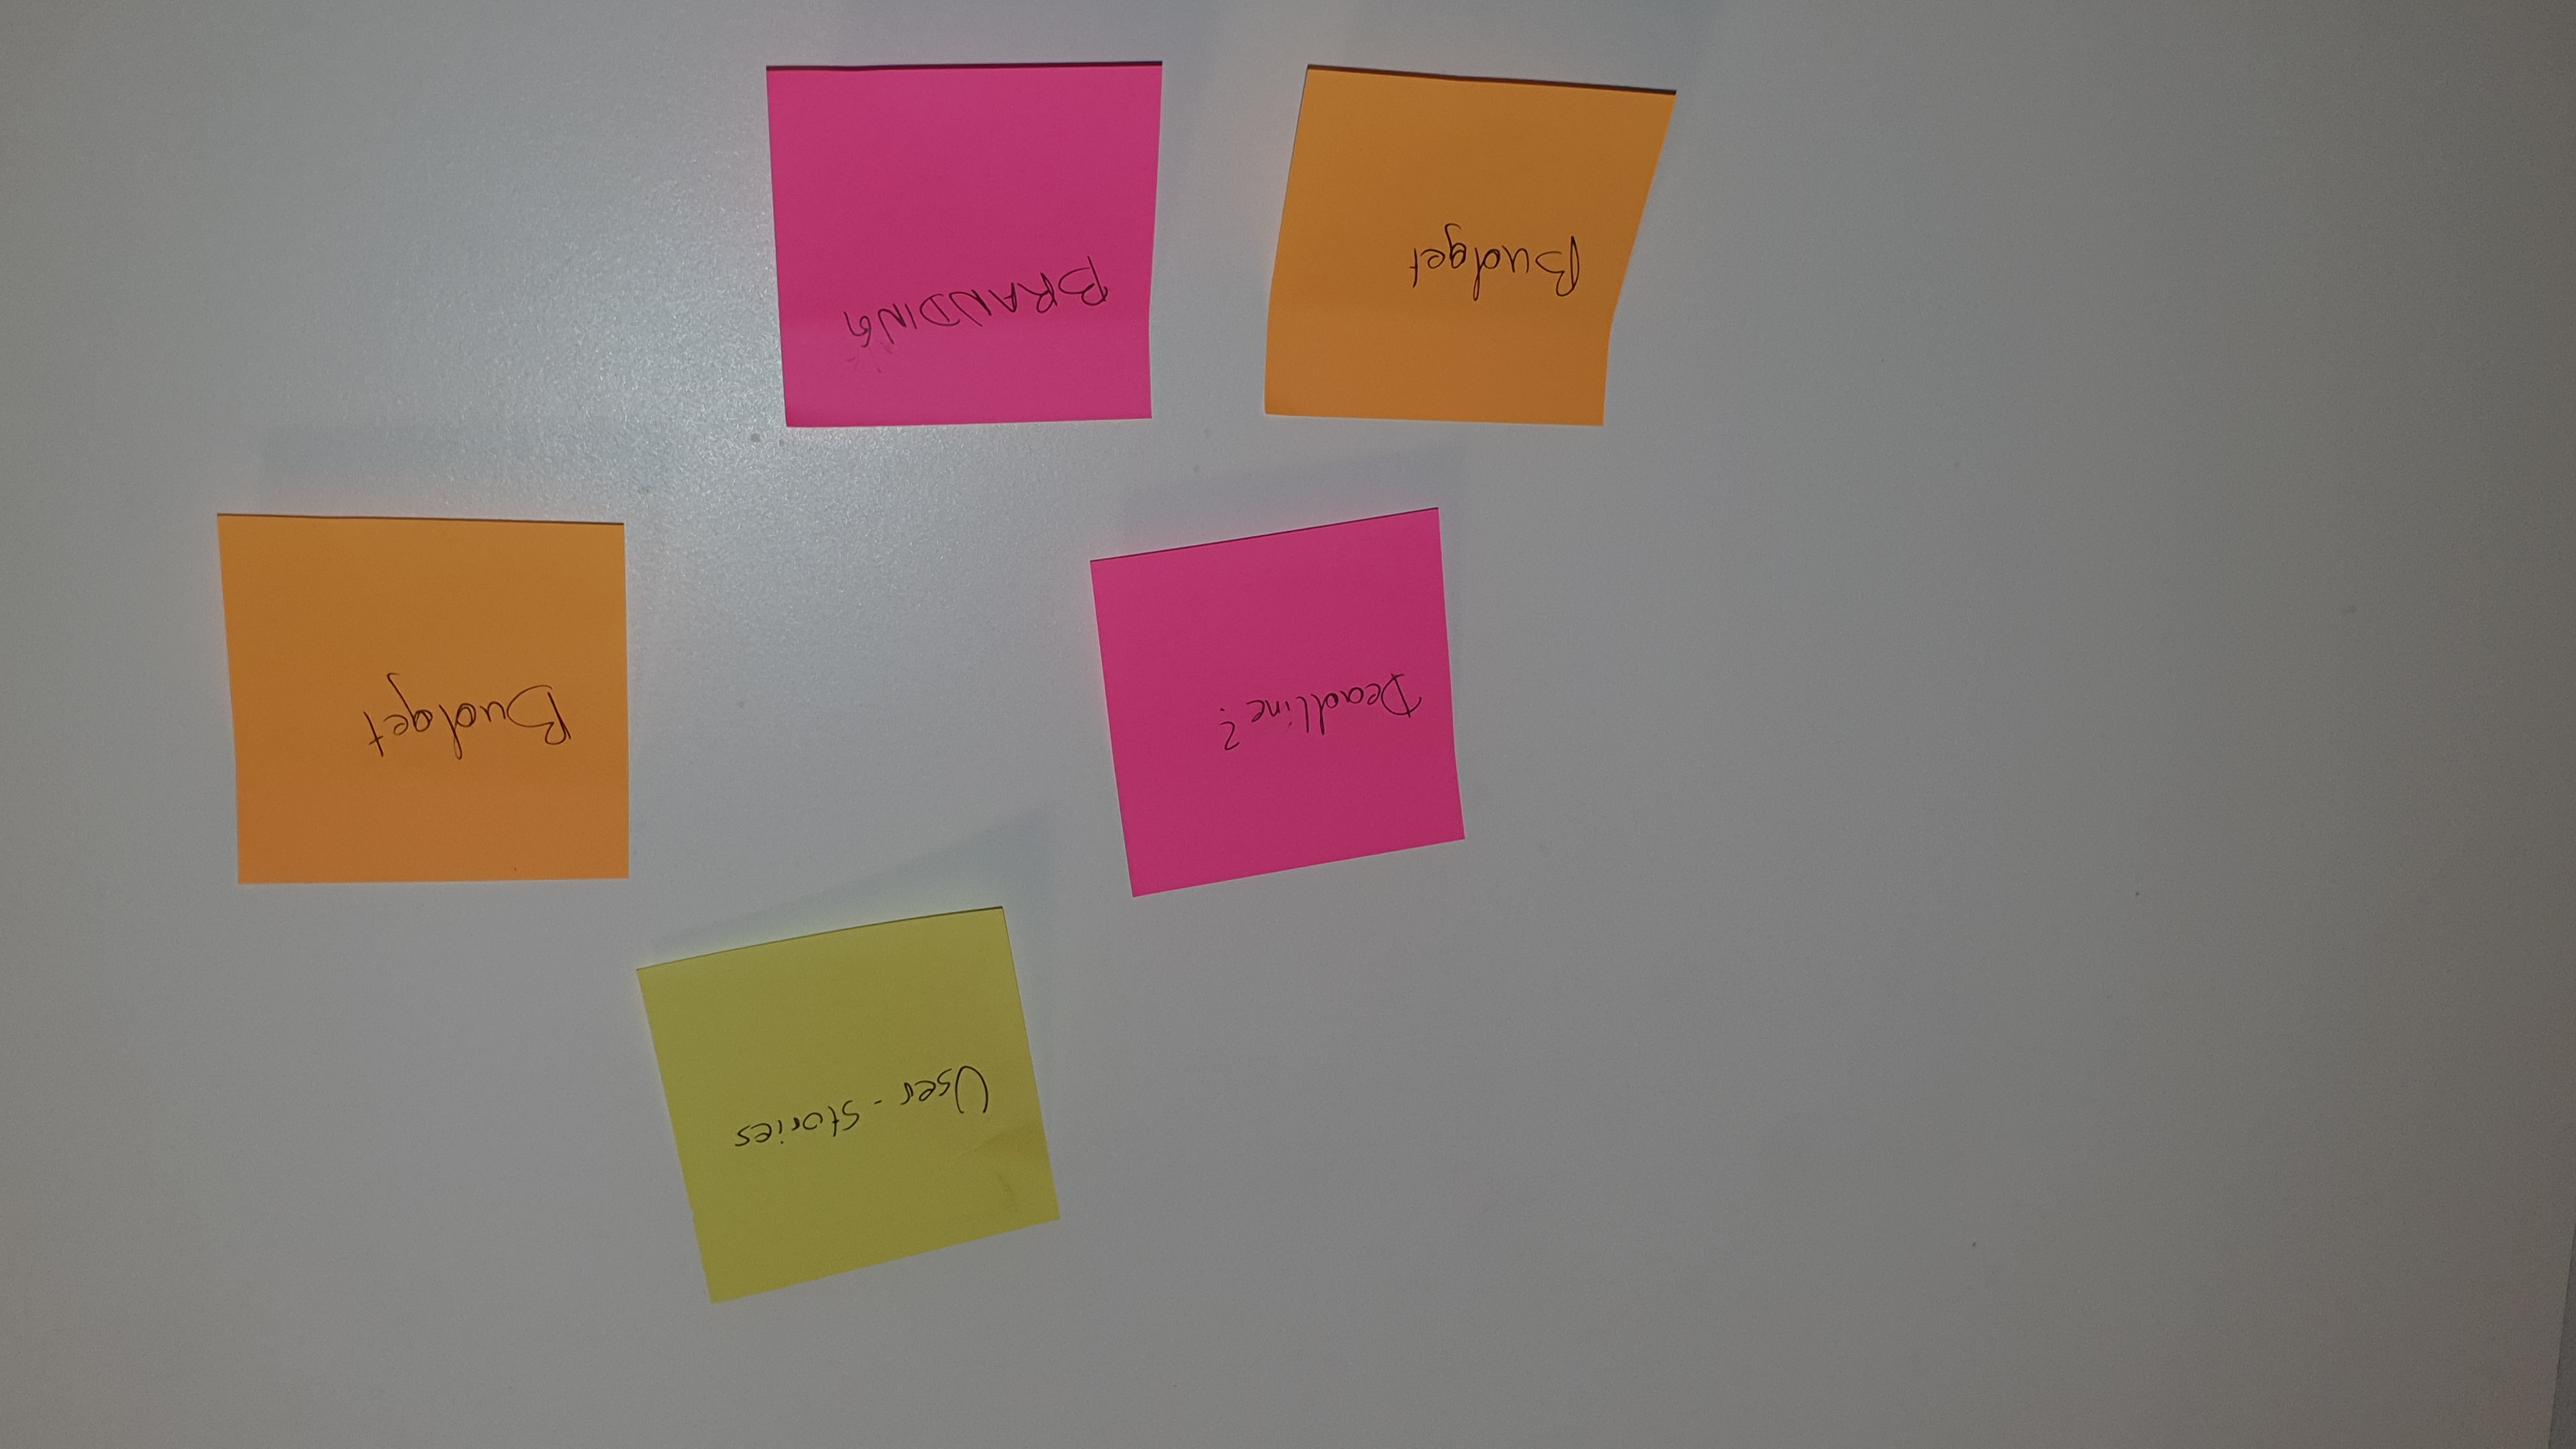 User-stories
Deadline?
Budget
Budget
BRANDING